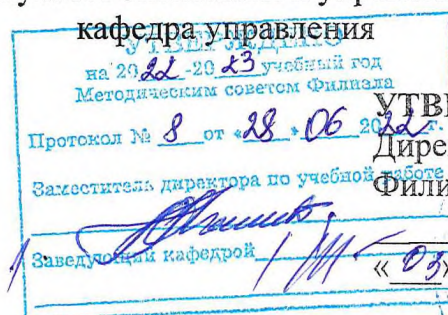 кафедра управления
УТВЕРЖДЕНО
на 2022-2023 учебный год
Методическим советом Филиала
Протокол № 8 от «28» 06 2022 г.
УТВЕ
Дире
Заместитель директора по учебной работе
Фили
Заведующий кафедрой
« 03 »